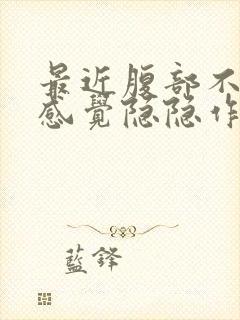 最近腹部不
感覺隐隐作
藍鋒